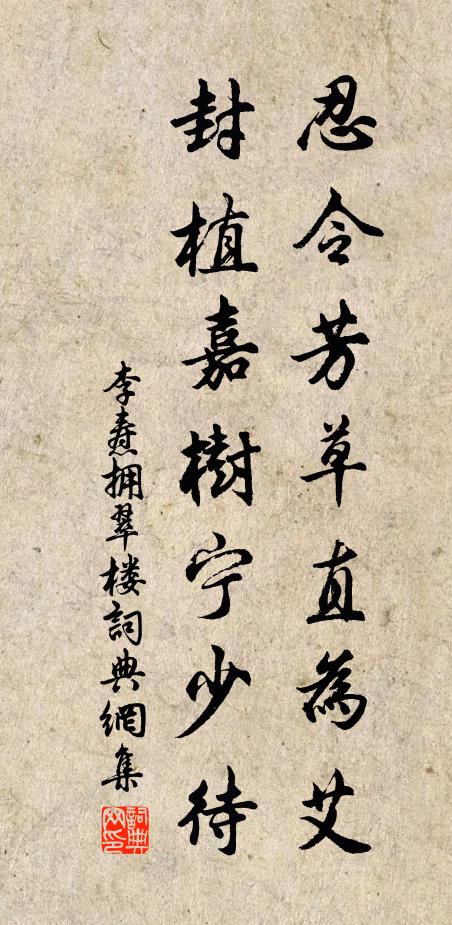 忍令芳草直為艾
封植嘉樹宁少待
李燾拥翠楼詞典網集
詞典网印